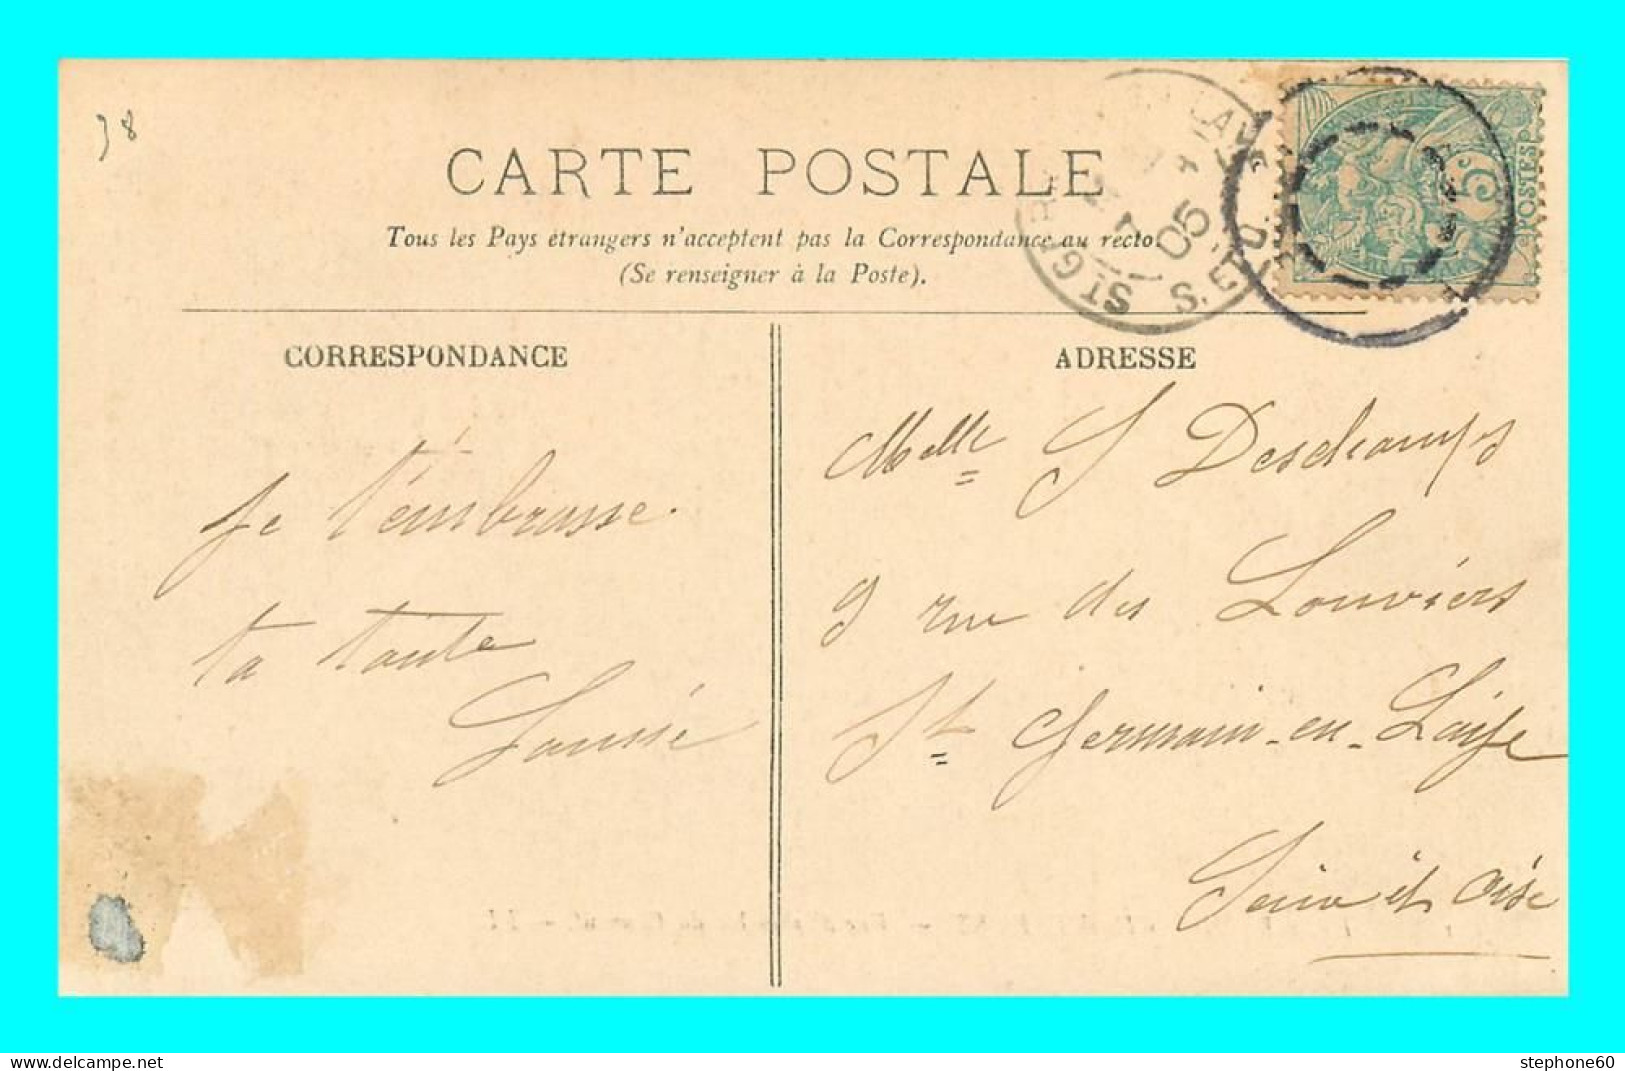 38
CARTE POSTALE
Tous les Pays étrangers n'acceptent pas la Correspondance au recto.
(Se renseigner à la Poste).
CORRESPONDANCE
ADRESSE
Je t'embrasse.
ta tante
Melle S Deschamps
9 rue des Louviers
St Germain-en-Laye
Seine et Oise
ST G
05
S. ET O.
5
POSTES
stephone60